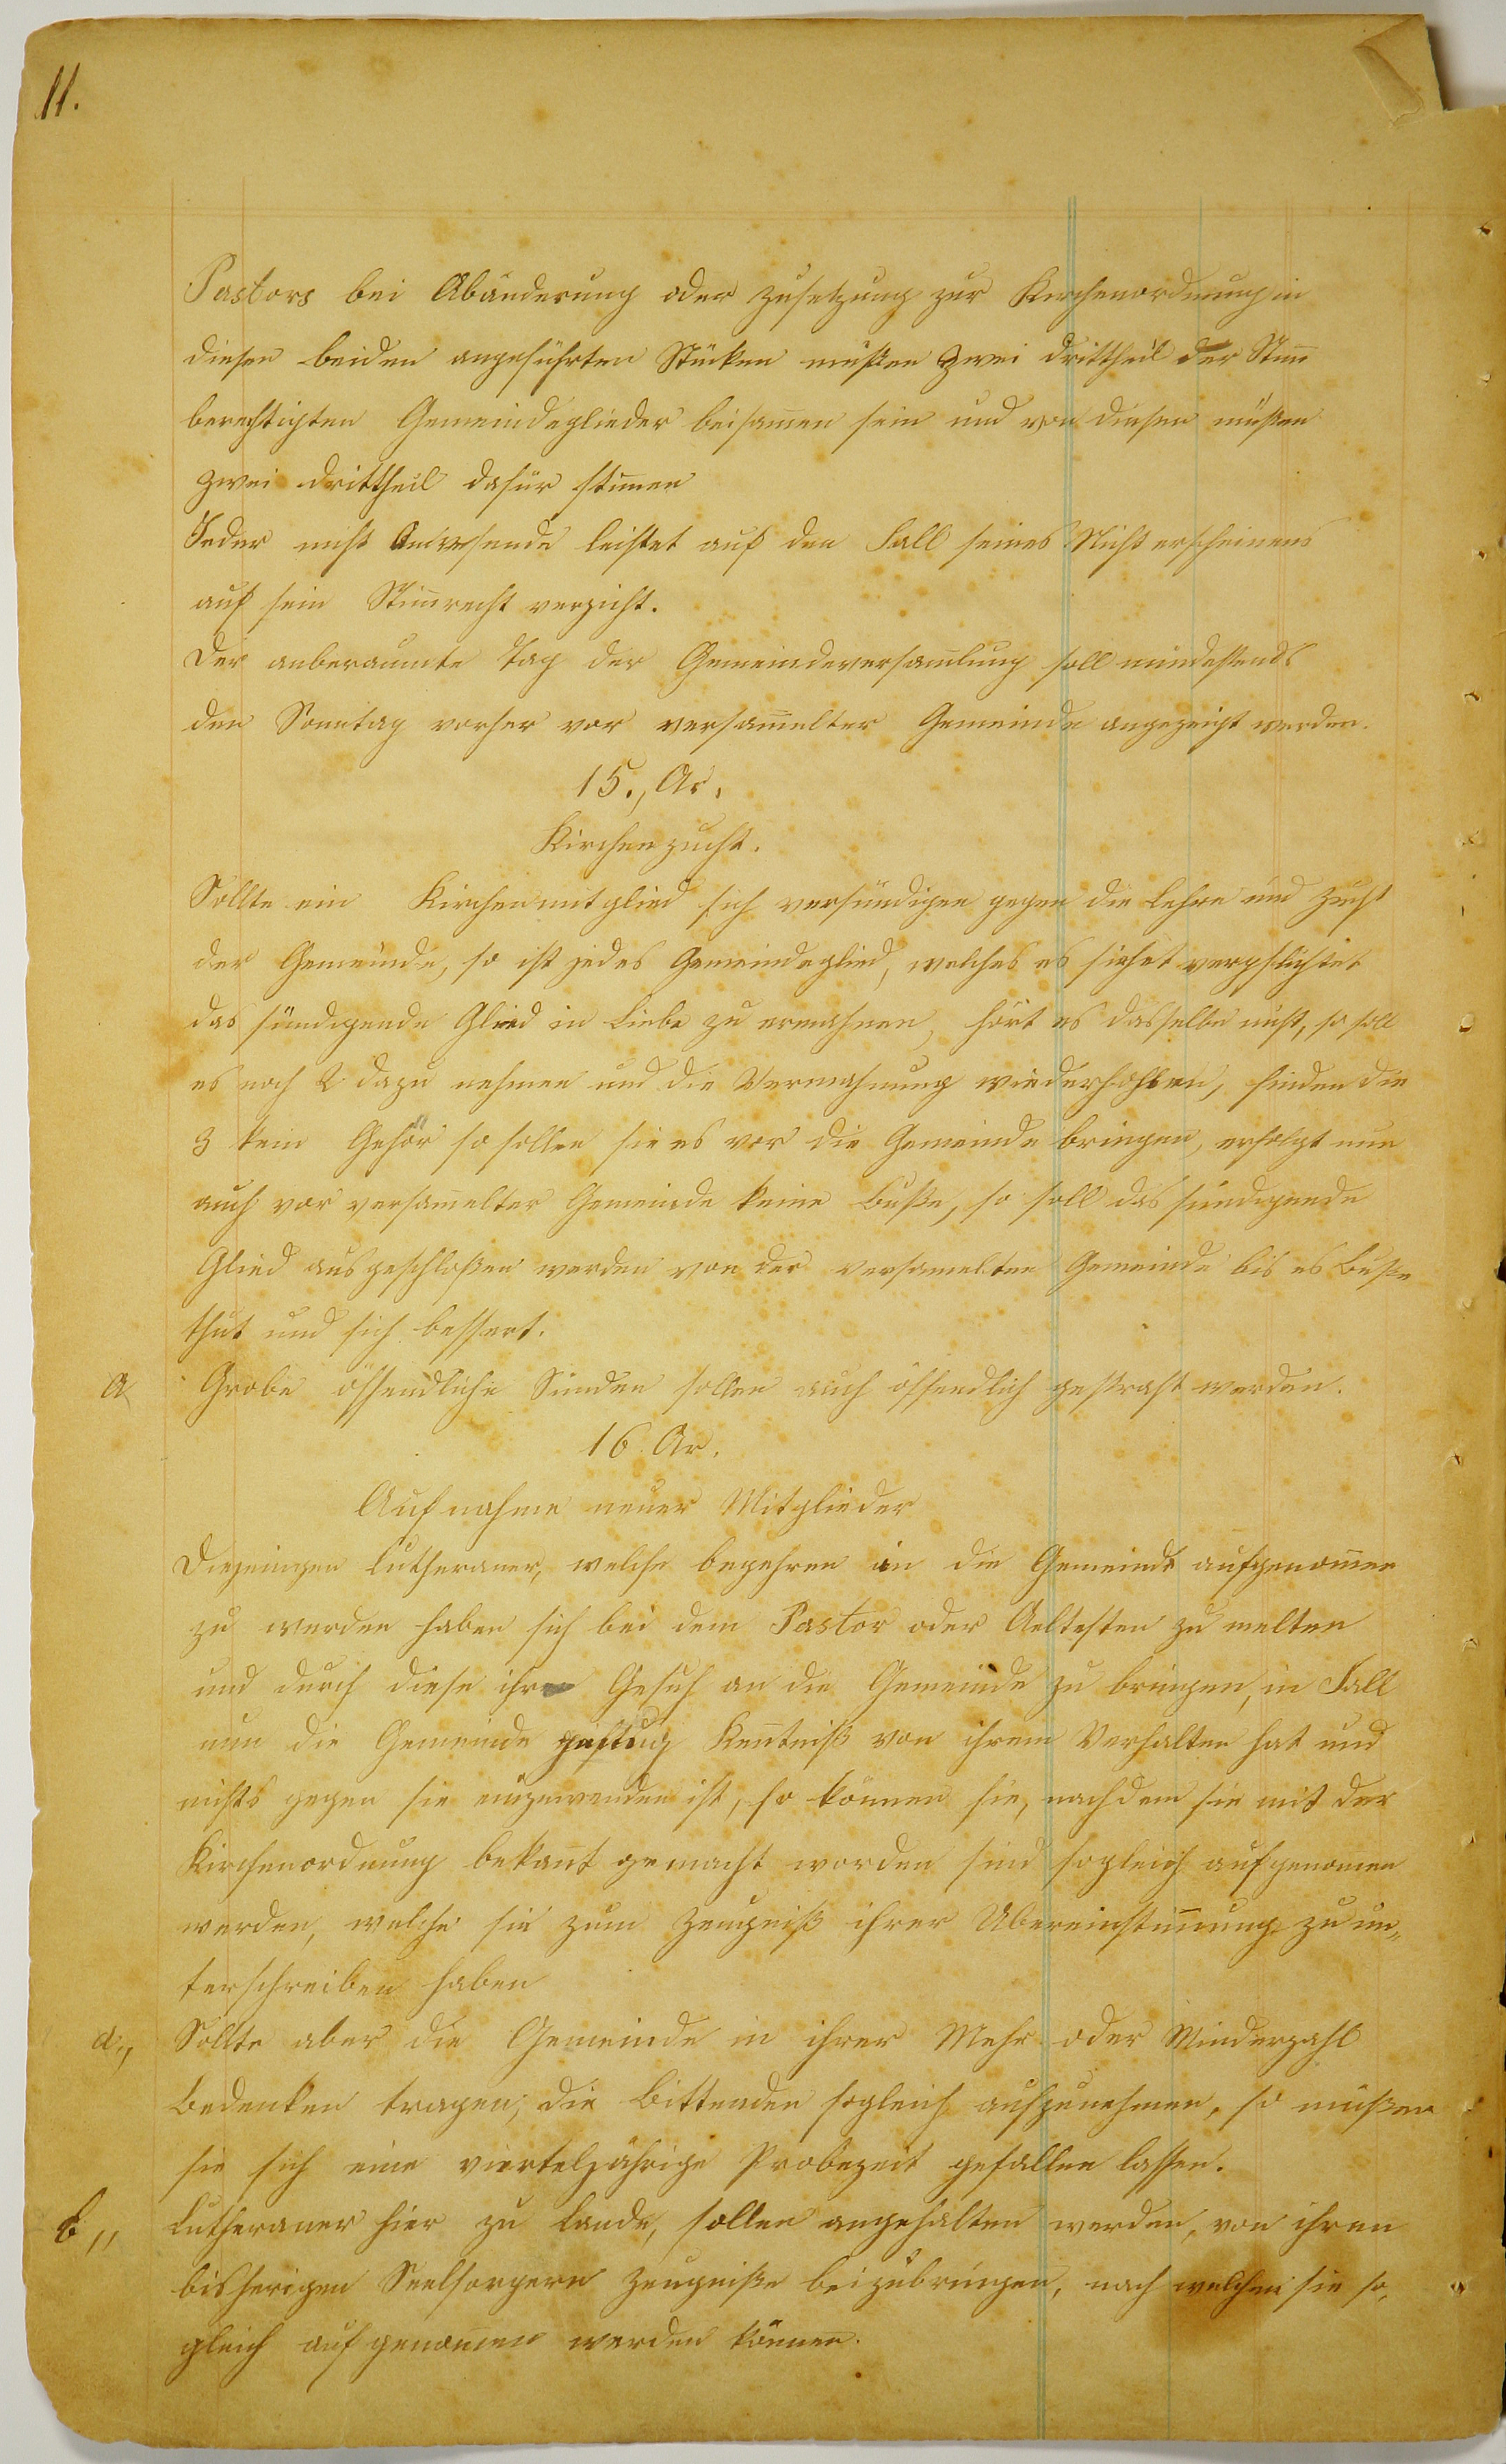 11.
Pastors bei Abänderung oder Zusetzung zur Kirchenordnung in
diesen beiden angeführten Stücken müßen zwei drittheil der Stim̄
berechtigten Gemeindeglieder beisam̄en sein und von diesen müßen
zwei drittheil dafür stim̄en
Jeder nicht Anwesende leistet auf den Fall seines Nichterscheinens
auf sein Stim̄recht verzicht.
Der anberaumte Tag der Gemeindeversam̄lung soll mindestends
den Sonntag vorher vor versam̄elter Gemeinde angezeigt werden.
15., Ar.
Kirchenzucht.
Sollte ein Kirchenmitglied sich versündigen gegen die Lehre und Zucht
der Gemeinde, so ist jedes Gemeindeglied, welches es siehet verpflichtet
das sündigende Glied in Liebe zu ermahnen, hört es dasselbe nicht, so soll
es noch 2 dazu nehmen und die Vermahnung wiederhohlen, finden die
3 kein Gehör so sollen sie es vor die Gemeinde bringen, erfolgt nun
auch vor versam̄elter Gemeinde keine Buße, so soll das sündigende
Glied ausgeschloßen werden von der versamelten Gemeinde bis es Buße
thut und sich bessert.
a Grobe öffendliche Sünden sollen auch öffendlich gestraft werden.
16 Ar.
Aufnahme neuer Mitglieder
Diejenigen Lutheraner, welche begehren in die Gemeinde aufgenom̄en
zu werden haben sich bei dem Pastor oder Aeltesten zu melten
und durch diese ihre Gesuch an die Gemeinde zu bringen, in Fall
nun die Gemeinde Ken̄tniß von ihrem Verhalten hat und
nichts gegen sie einzuwenden ist, so können sie, nachdem sie mit der
Kirchenordnung bekan̄t gemacht worden sind sogleich aufgenomen
werden, welche sie zum Zeugniß ihrer Ubereinstim̄ung zu un„
terschreiben haben
a„ Sollte aber die Gemeinde in ihrer Mehr oder Minderzahl
Bedenken tragen, die Bittenden sogleich aufzunehmen, so müßen
sie sich eine vierteljährige Probezeit gefallen lassen.
b„ Lutheraner hier zu Lande, sollen angehalten werden, von ihren
bisherigen Seelsorgern Zeugniße beizubringen, nach welchen sie so„
gleich aufgenom̄en werden können.